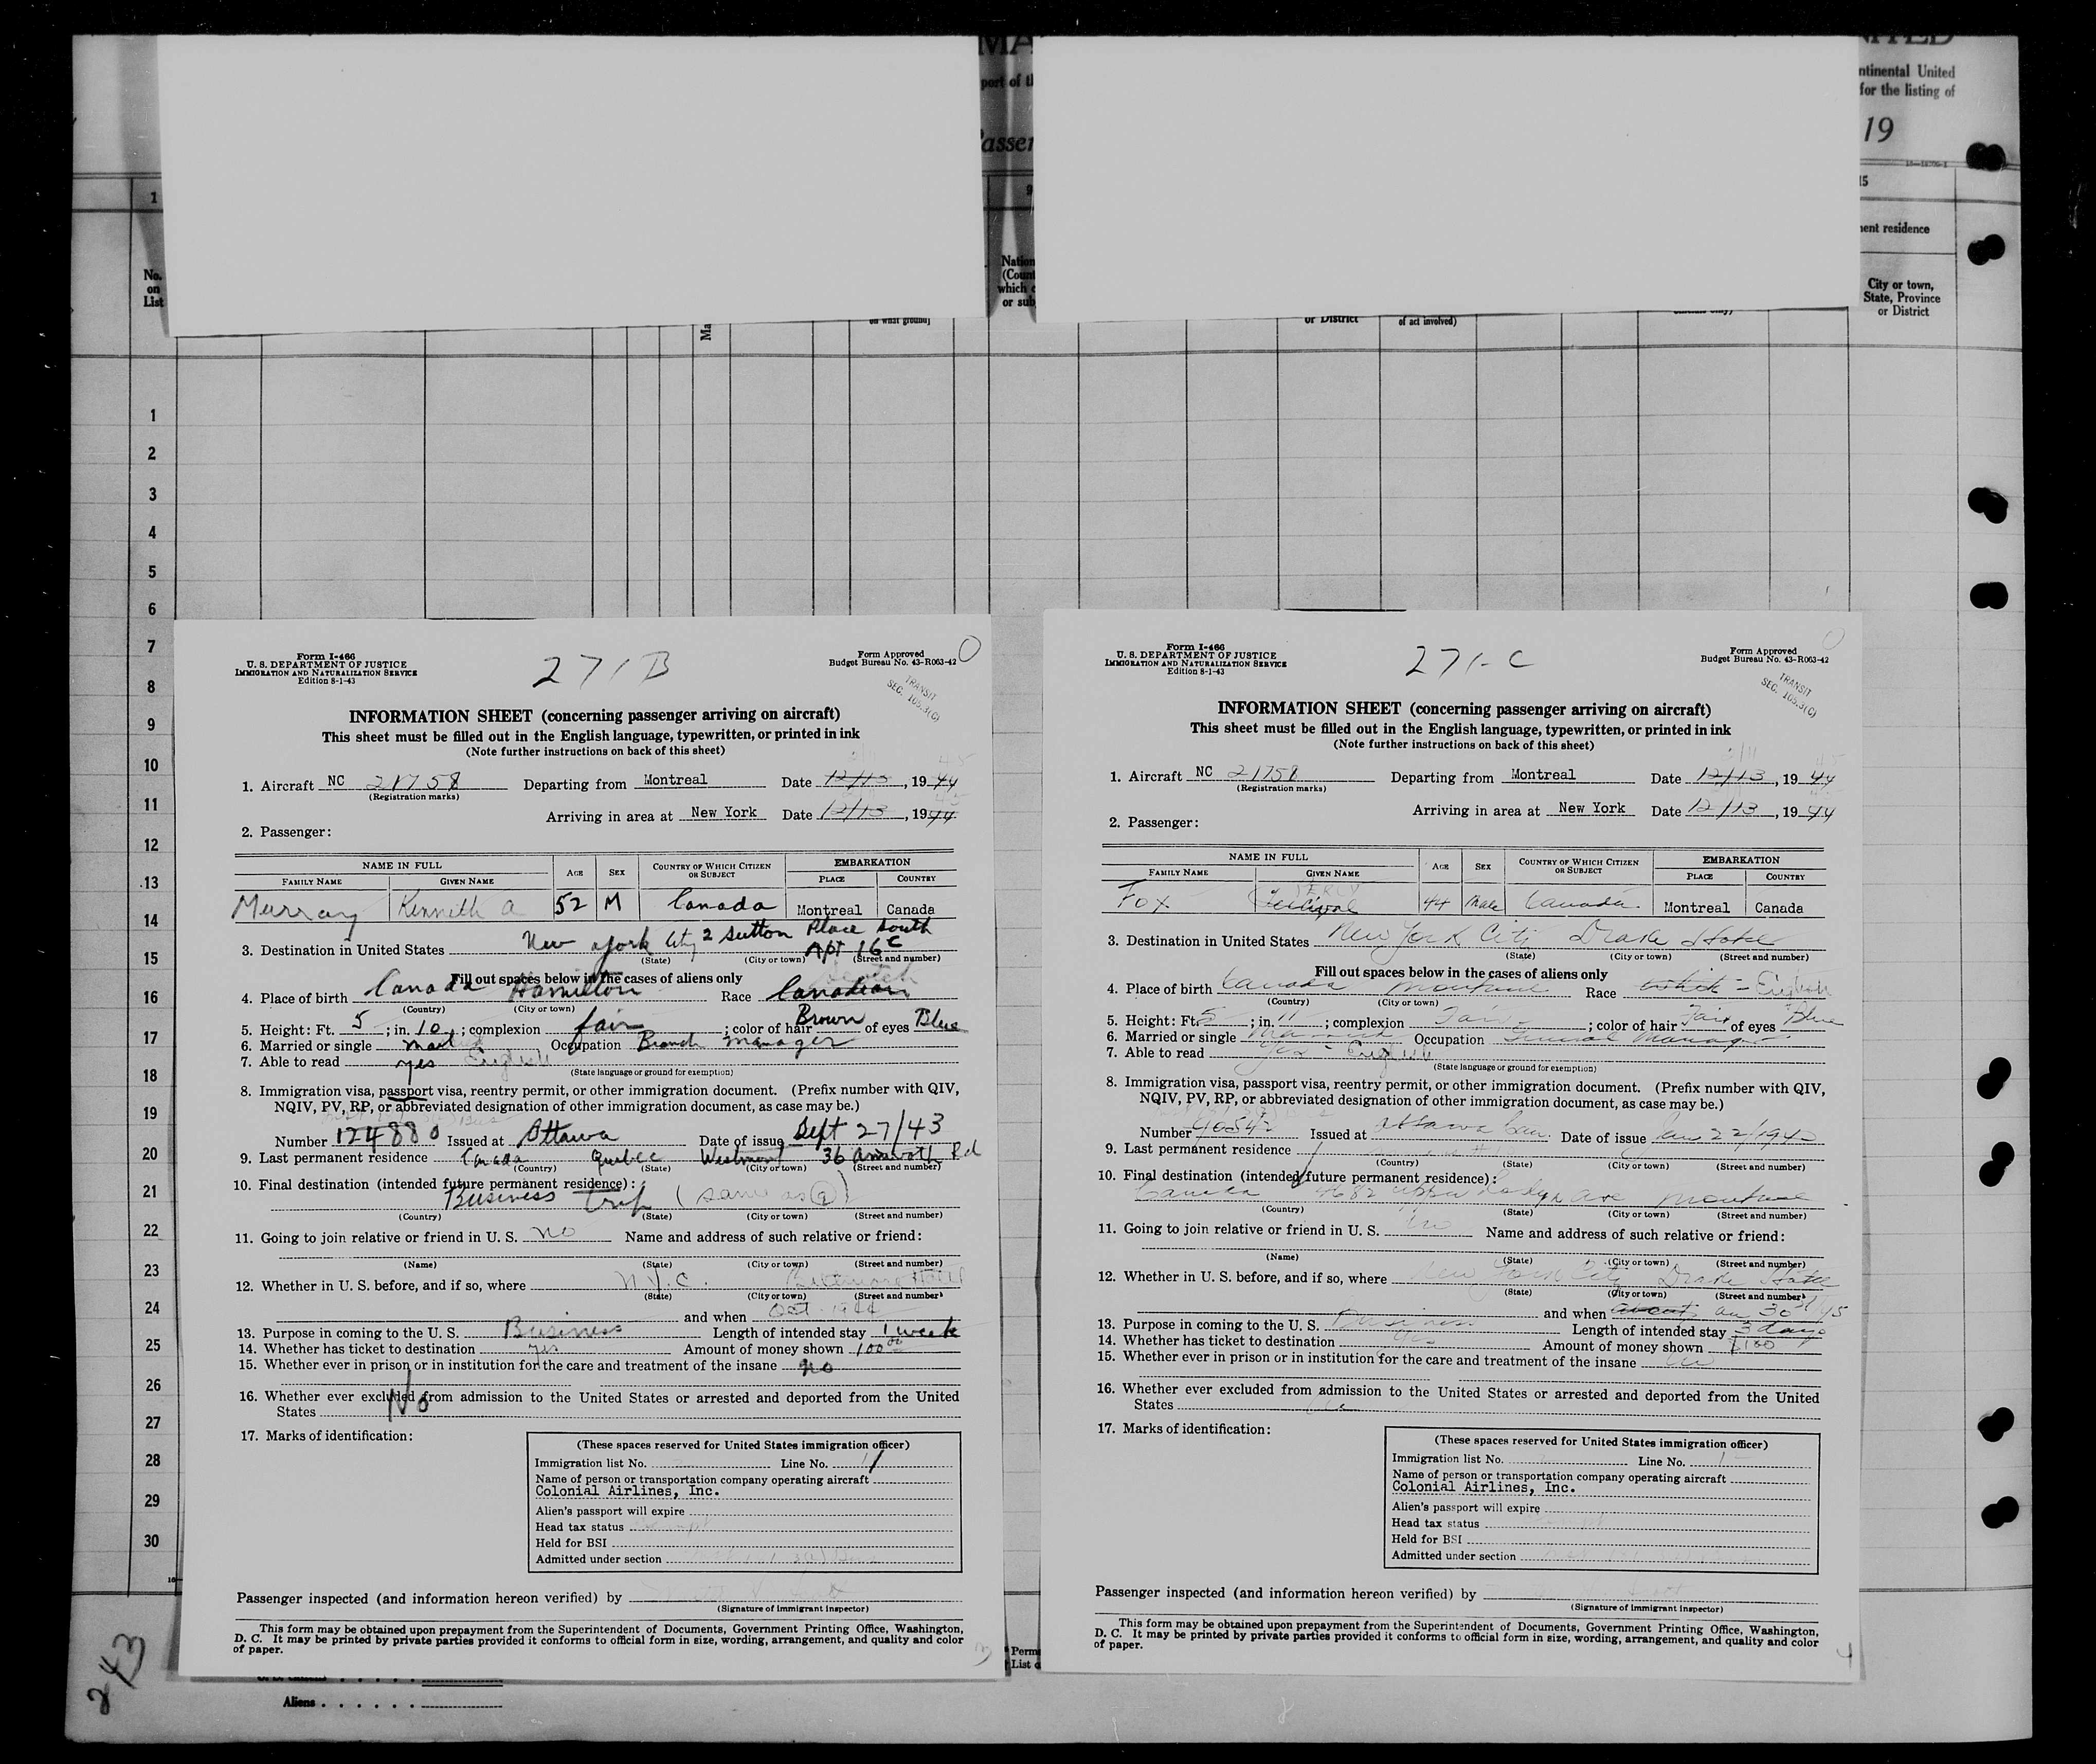 MA
port of th
asser
NITED
ntinental United
for the listing of
19
1
9
15
No.
on
List
Nation
(Count
which c
or sub
ent residence
City or town,
State, Province
or District
Ma
on what ground)
or District
of act involved)
1
2
3
4
5
6
7
8
9
10
11
12
13
14
15
16
17
18
19
20
21
22
23
24
25
26
27
28
29
30
Form I-466
U. S. DEPARTMENT OF JUSTICE
IMMIGRATION AND NATURALIZATION SERVICE
Edition 8-1-43
271B
Form Approved
Budget Bureau No. 43-R063-42
0
TRANSIT
SEC. 105.3(C)
INFORMATION SHEET (concerning passenger arriving on aircraft)
This sheet must be filled out in the English language, typewritten, or printed in ink
(Note further instructions on back of this sheet)
1. Aircraft NC 21758 Departing from Montreal Date 12/13, 1944
(Registration marks)
Arriving in area at New York Date 12/13, 1944
2. Passenger:
NAME IN FULL AGE SEX COUNTRY OF WHICH CITIZEN OR SUBJECT EMBARKATION
FAMILY NAME GIVEN NAME PLACE COUNTRY
Murray Kenneth A 52 M Canada Montreal Canada
3. Destination in United States New York City 2 Sutton Place South Apt 16C
(State) (City or town) (Street and number)
Fill out spaces below in the cases of aliens only
4. Place of birth Canada Hamilton Race Canadian Scotch
(Country) (City or town)
5. Height: Ft. 5; in. 10; complexion fair; color of hair Brown of eyes Blue
6. Married or single Occupation Branch manager
7. Able to read yes English
(State language or ground for exemption)
8. Immigration visa, passport visa, reentry permit, or other immigration document. (Prefix number with QIV,
NQIV, PV, RP, or abbreviated designation of other immigration document, as case may be.)
Number 124880 Issued at Ottawa Date of issue Sept 27/43
9. Last permanent residence Canada Quebec Westmount 36 Rd
(Country) (State) (City or town) (Street and number)
10. Final destination (intended future permanent residence):
Business trip (same as 9)
(Country) (State) (City or town) (Street and number)
11. Going to join relative or friend in U. S. no Name and address of such relative or friend:
(Name) (State) (City or town) (Street and number)
12. Whether in U. S. before, and if so, where N.Y.C. Biltmore Hotel
(State) (City or town) (Street and number)
and when Oct 1944
13. Purpose in coming to the U. S. Business Length of intended stay 1 week
14. Whether has ticket to destination yes Amount of money shown 100 00
15. Whether ever in prison or in institution for the care and treatment of the insane no
16. Whether ever excluded from admission to the United States or arrested and deported from the United
States No
17. Marks of identification:
(These spaces reserved for United States immigration officer)
Immigration list No. Line No. 1
Name of person or transportation company operating aircraft
Colonial Airlines, Inc.
Alien's passport will expire
Head tax status
Held for BSI
Admitted under section
Passenger inspected (and information hereon verified) by
(Signature of Immigrant Inspector)
This form may be obtained upon prepayment from the Superintendent of Documents, Government Printing Office, Washington,
D. C. It may be printed by private parties provided it conforms to official form in size, wording, arrangement, and quality and color
of paper.
Form I-466
U. S. DEPARTMENT OF JUSTICE
IMMIGRATION AND NATURALIZATION SERVICE
Edition 8-1-43
271-C
Form Approved
Budget Bureau No. 43-R063-42
TRANSIT
SEC. 105.3(C)
INFORMATION SHEET (concerning passenger arriving on aircraft)
This sheet must be filled out in the English language, typewritten, or printed in ink
(Note further instructions on back of this sheet)
1. Aircraft NC 21758 Departing from Montreal Date 12/13, 1944
(Registration marks)
Arriving in area at New York Date 12/13, 1944
2. Passenger:
NAME IN FULL AGE SEX COUNTRY OF WHICH CITIZEN OR SUBJECT EMBARKATION
FAMILY NAME GIVEN NAME PLACE COUNTRY
Fox Percival 44 Male Canada. Montreal Canada
3. Destination in United States New York City Drake Hotel
(State) (City or town) (Street and number)
Fill out spaces below in the cases of aliens only
4. Place of birth Canada Montreal Race White - English
(Country) (City or town)
5. Height: Ft. 5; in. 11; complexion Fair; color of hair Fair of eyes Blue
6. Married or single Married Occupation General Manager
7. Able to read Yes - English
(State language or ground for exemption)
8. Immigration visa, passport visa, reentry permit, or other immigration document. (Prefix number with QIV,
NQIV, PV, RP, or abbreviated designation of other immigration document, as case may be.)
Number 40542 Issued at Ottawa Can. Date of issue Jan 22/1940
9. Last permanent residence
(Country) (State) (City or town) (Street and number)
10. Final destination (intended future permanent residence):
Canada Ave Montreal
(Country) (State) (City or town) (Street and number)
11. Going to join relative or friend in U. S. no Name and address of such relative or friend:
(Name) (State) (City or town) (Street and number)
12. Whether in U. S. before, and if so, where New York City Drake Hotel
(State) (City or town) (Street and number)
and when 30 45
13. Purpose in coming to the U. S. Business Length of intended stay 3 days
14. Whether has ticket to destination Yes Amount of money shown $100
15. Whether ever in prison or in institution for the care and treatment of the insane no
16. Whether ever excluded from admission to the United States or arrested and deported from the United
States no
17. Marks of identification:
(These spaces reserved for United States immigration officer)
Immigration list No. Line No. 1
Name of person or transportation company operating aircraft
Colonial Airlines, Inc.
Alien's passport will expire
Head tax status
Held for BSI
Admitted under section
Passenger inspected (and information hereon verified) by
(Signature of Immigrant Inspector)
This form may be obtained upon prepayment from the Superintendent of Documents, Government Printing Office, Washington,
D. C. It may be printed by private parties provided it conforms to official form in size, wording, arrangement, and quality and color
of paper.
4
243
Perm
List o
Aliens